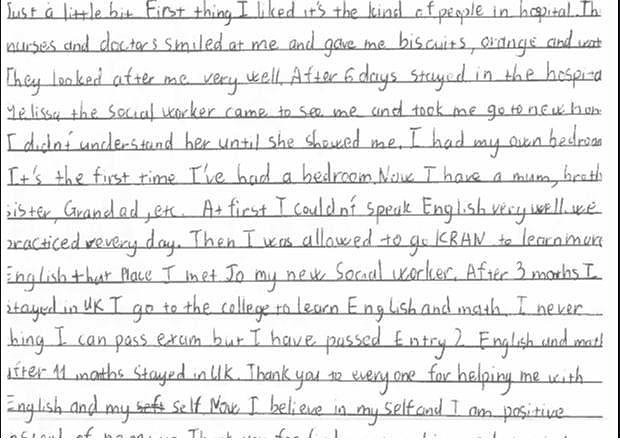 Just a little bit First thing I liked it's the kind of people in hospital. Th
nurses and doctors smiled at me and gave me biscuits, orange and wat
They looked after me very well. After 6 days stayed in the hospita
Melissa the social worker came to see me and took me go to new hom
I didn't understand her until she showed me. I had my own bedroom
It's the first time I've had a bedroom. Now I have a mum, broth
sister, Grandad, etc. At first I couldn't speak English very well. we
practiced every day. Then I was allowed to go KRAN to learn more
English that Place I met Jo my new Social worker. After 3 months I
stayed in UK I go to the college to learn English and math. I never
thing I can pass exam but I have passed Entry 2 English and math
after 11 months stayed in UK. Thank you to every one for helping me with
English and my self Now I believe in my self and I am positive